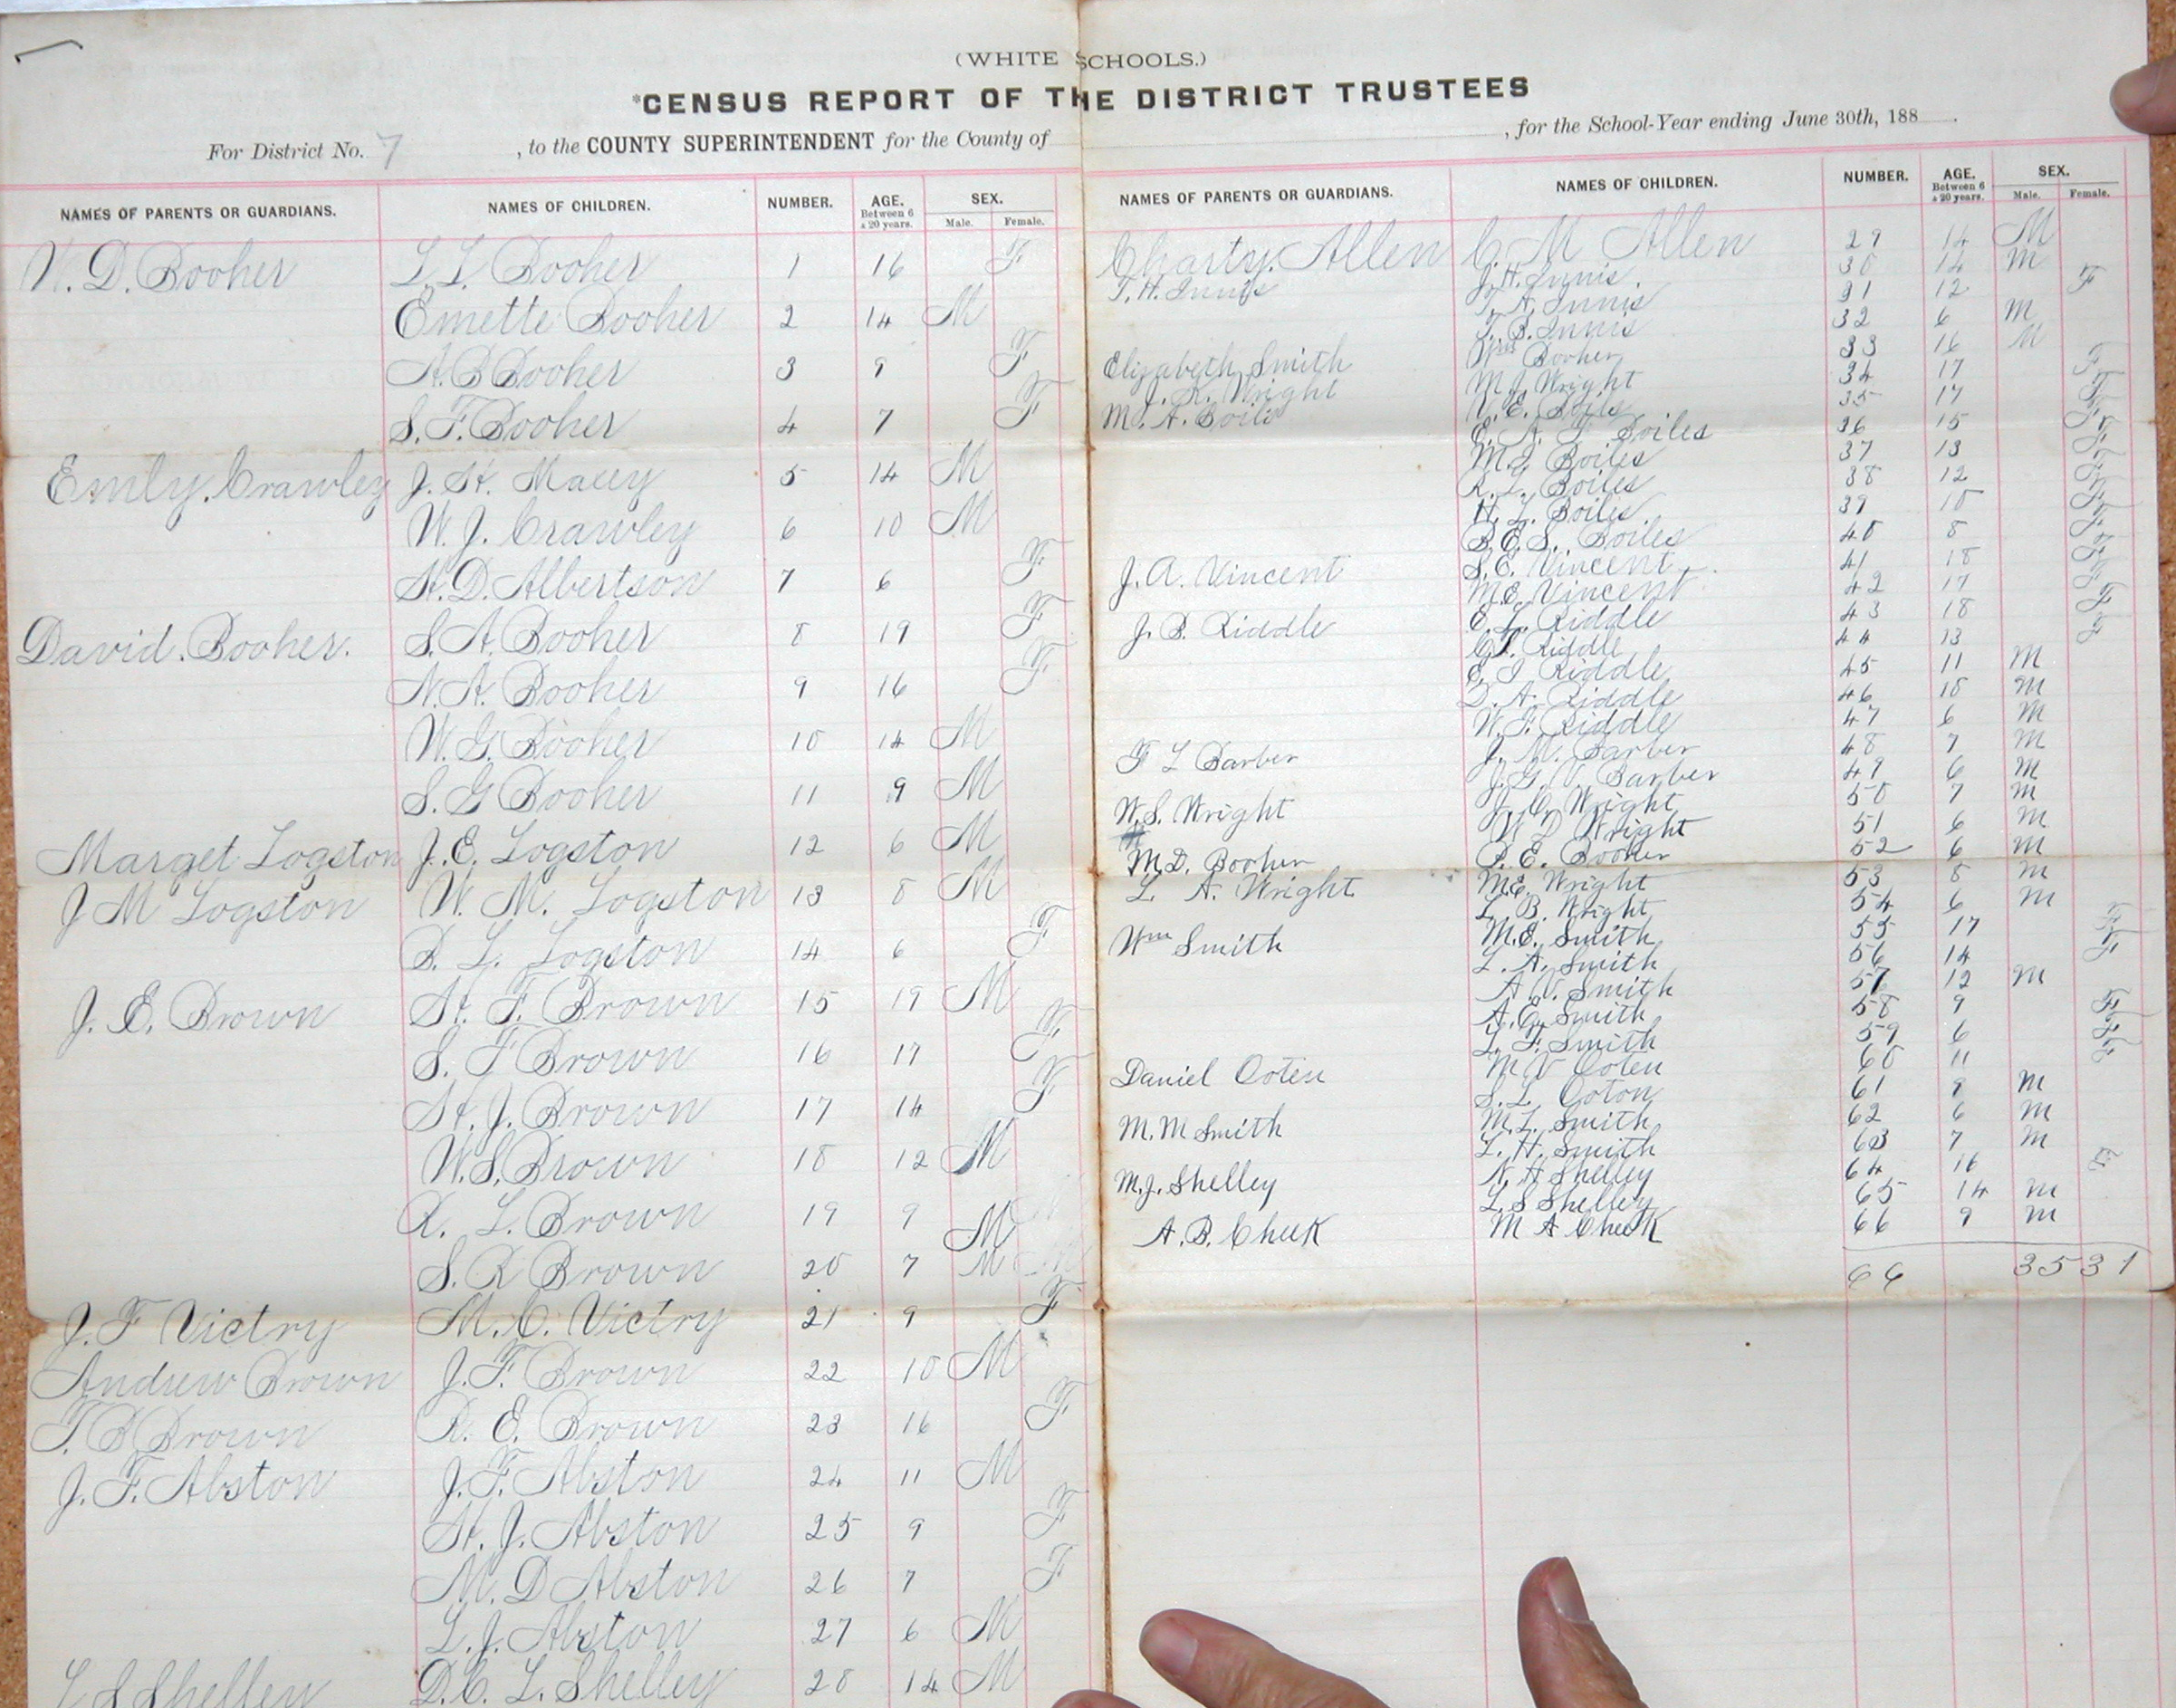 (WHITE SCHOOLS.)
*CENSUS REPORT OF THE DISTRICT TRUSTEES
For District No. 7, to the COUNTY SUPERINTENDENT for the County of , for the School-Year ending June 30th, 188 .
NAMES OF PARENTS OR GUARDIANS. NAMES OF CHILDREN. NUMBER. AGE. Between 6 & 20 years. SEX. Male. Female.
W. D. Booher L. L. Booher 1 16 F
Emette Booher 2 14 M
A. B Booher 3 9 F
S. F. Booher 4 7 F
Emly. Crawley J. H. Macey 5 14 M
W. J. Crawley 6 10 M
H. D. Albertson 7 6 F
David. Booher. S. A. Booher 8 19 F
N. A. Booher 9 16 F
W. G. Booher 10 14 M
S. G Booher 11 9 M
Marget Logston J. E. Logston 12 6 M
J M Logston W. M. Logston 13 8 M
R. L. Logston 14 6 F
J. E. Brown H. F. Brown 15 19 M
S. F Brown 16 17 F
H. J. Brown 17 14 F
W. S. Brown 18 12 M
R. L. Brown 19 9 M
S. R Brown 20 7 M
J. F Victry M. C. Victry 21 9 F
Andrew Brown J. F. Brown 22 10 M
T. B Brown R. E. Brown 23 16 F
J. F. Abston J. F. Abston 24 11 M
H. J. Abston 25 9 F
M. D Abston 26 7 F
L. J. Abston 27 6 M
L S Shelley D. C. L. Shelley 28 14 M
NAMES OF PARENTS OR GUARDIANS. NAMES OF CHILDREN. NUMBER. AGE. Between 6 & 20 years. SEX. Male. Female.
Charty. Allen C. M Allen 29 14 M
T. H. Innis J. H. Innis 30 14 M
T. A. Innis 31 12 F
T. B. Innis 32 6 M
Elizabeth Smith Wm Booher 33 16 M
J. K. Wright M. J. Wright 34 17 F
M. A. Boils V. E. Boils 35 17 F
E. A. F Boiles 36 15 F
M. J. Boiles 37 13 F
R. L. Boiles 38 12 F
H. L. Boiles. 39 10 F
B. E. S. Boiles 40 8 F
J. A. Vincent S. E. Vincent 41 18 F
M. E. Vincent 42 17 F
J. B. Riddle E. L. Riddle 43 18 F
G. T. Riddle 44 13 F
E. I Riddle 45 11 M
D. A. Riddle 46 10 M
W. F. Riddle 47 6 M
F L Barber J. M. Barber 48 7 M
J. G. V. Barber 49 6 M
W. S. Wright J. C. Wright 50 7 M
W D Wright 51 6 M
M. D. Booher P. E. Booher 52 6 M
L. A. Wright M. E. Wright 53 8 M
L. B. Wright 54 6 M
Wm Smith M. E. Smith 55 17 F
L. A. Smith 56 14 F
A. V. Smith 57 12 M
A. E. Smith 58 9 F
L. F. Smith 59 6 F
Daniel Ooten M V Ooten 60 11 F
S. L. Ooton 61 9 M
M. M Smith M. L. Smith 62 6 M
L. H. Smith 63 7 M
M. J. Shelley N. A Shelley 64 16 F
L S Shelley 65 14 M
A. B. Cheek M A Cheek 66 9 M
66 35 31